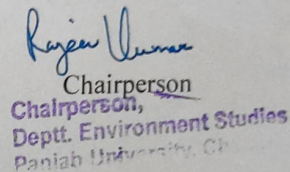 Rajeev Kumar
Chairperson
Chairperson,
Deptt. Environment Studies
Panjab University, Ch